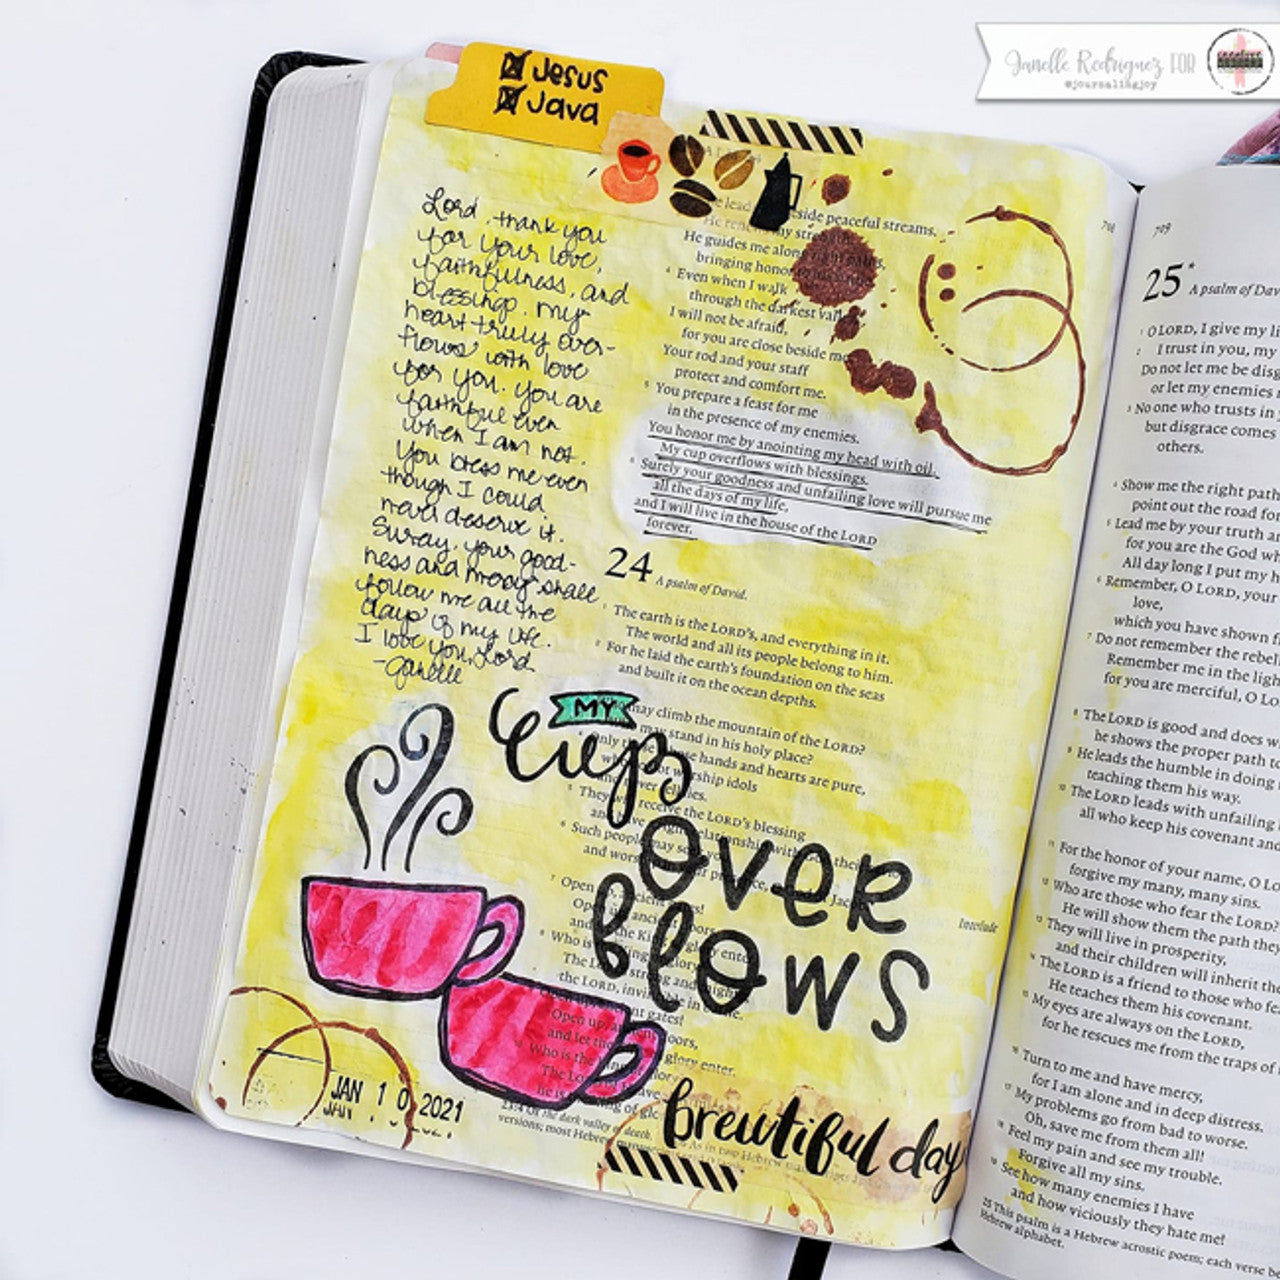 Janelle Rodriguez FOR
@journalingjoy
Jesus
Java
Lord, thank you
for your love,
faithfulness, and
blessings. my
heart truly over-
flows with love
for you. You are
faithful even
when I am not.
You bless me even
though I could
never deserve it.
Surely, your good-
ness and mercy shall
follow me all the
days of my life.
I love you, Lord.
-Janelle
708
beside peaceful streams.
He renews my strength.
He guides me along right paths,
bringing honor to his name.
4 Even when I walk
through the darkest valley,
I will not be afraid,
for you are close beside me.
Your rod and your staff
protect and comfort me.
5 You prepare a feast for me
in the presence of my enemies.
You honor me by anointing my head with oil.
My cup overflows with blessings.
6 Surely your goodness and unfailing love will pursue me
all the days of my life,
and I will live in the house of the LORD
forever.
24 A psalm of David.
1 The earth is the LORD's, and everything in it.
The world and all its people belong to him.
2 For he laid the earth's foundation on the seas
and built it on the ocean depths.
may climb the mountain of the LORD?
may stand in his holy place?
4 Only those whose hands and hearts are pure,
worship idols
and never tell lies.
5 They will receive the LORD's blessing
6 Such people may
and worship
7 Open
Open up, ancient doors,
8 Who is the King of glory
The LORD, strong and mighty
the LORD, invincible in battle.
gates!
Open up, ancient doors,
and let the glory enter.
Who is the
Interlude
MY
Cup
OVER
flows
brewtiful day
JAN 10 2021
709
25* A psalm of Dav
1 O LORD, I give my li
2 I trust in you, my
Do not let me be disg
or let my enemies
3 No one who trusts in
but disgrace comes
others.
4 Show me the right path
point out the road for
5 Lead me by your truth an
for you are the God wh
All day long I put my h
6 Remember, O LORD, your
love,
which you have shown f
7 Do not remember the rebell
Remember me in the light
for you are merciful, O LO
8 The LORD is good and does w
he shows the proper path to
9 He leads the humble in doing
teaching them his way.
10 The LORD leads with unfailing
all who keep his covenant and
11 For the honor of your name, O LO
forgive my many, many sins.
12 Who are those who fear the LORD?
He will show them the path they
13 They will live in prosperity,
and their children will inherit the
14 The LORD is a friend to those who fea
He teaches them his covenant.
15 My eyes are always on the LORD,
for he rescues me from the traps of
16 Turn to me and have mercy,
for I am alone and in deep distress.
17 My problems go from bad to worse.
Oh, save me from them all!
18 Feel my pain and see my trouble.
Forgive all my sins.
19 See how many enemies I have
and how viciously they hate me!
25 This psalm is a Hebrew acrostic poem; each verse be
Hebrew alphabet.